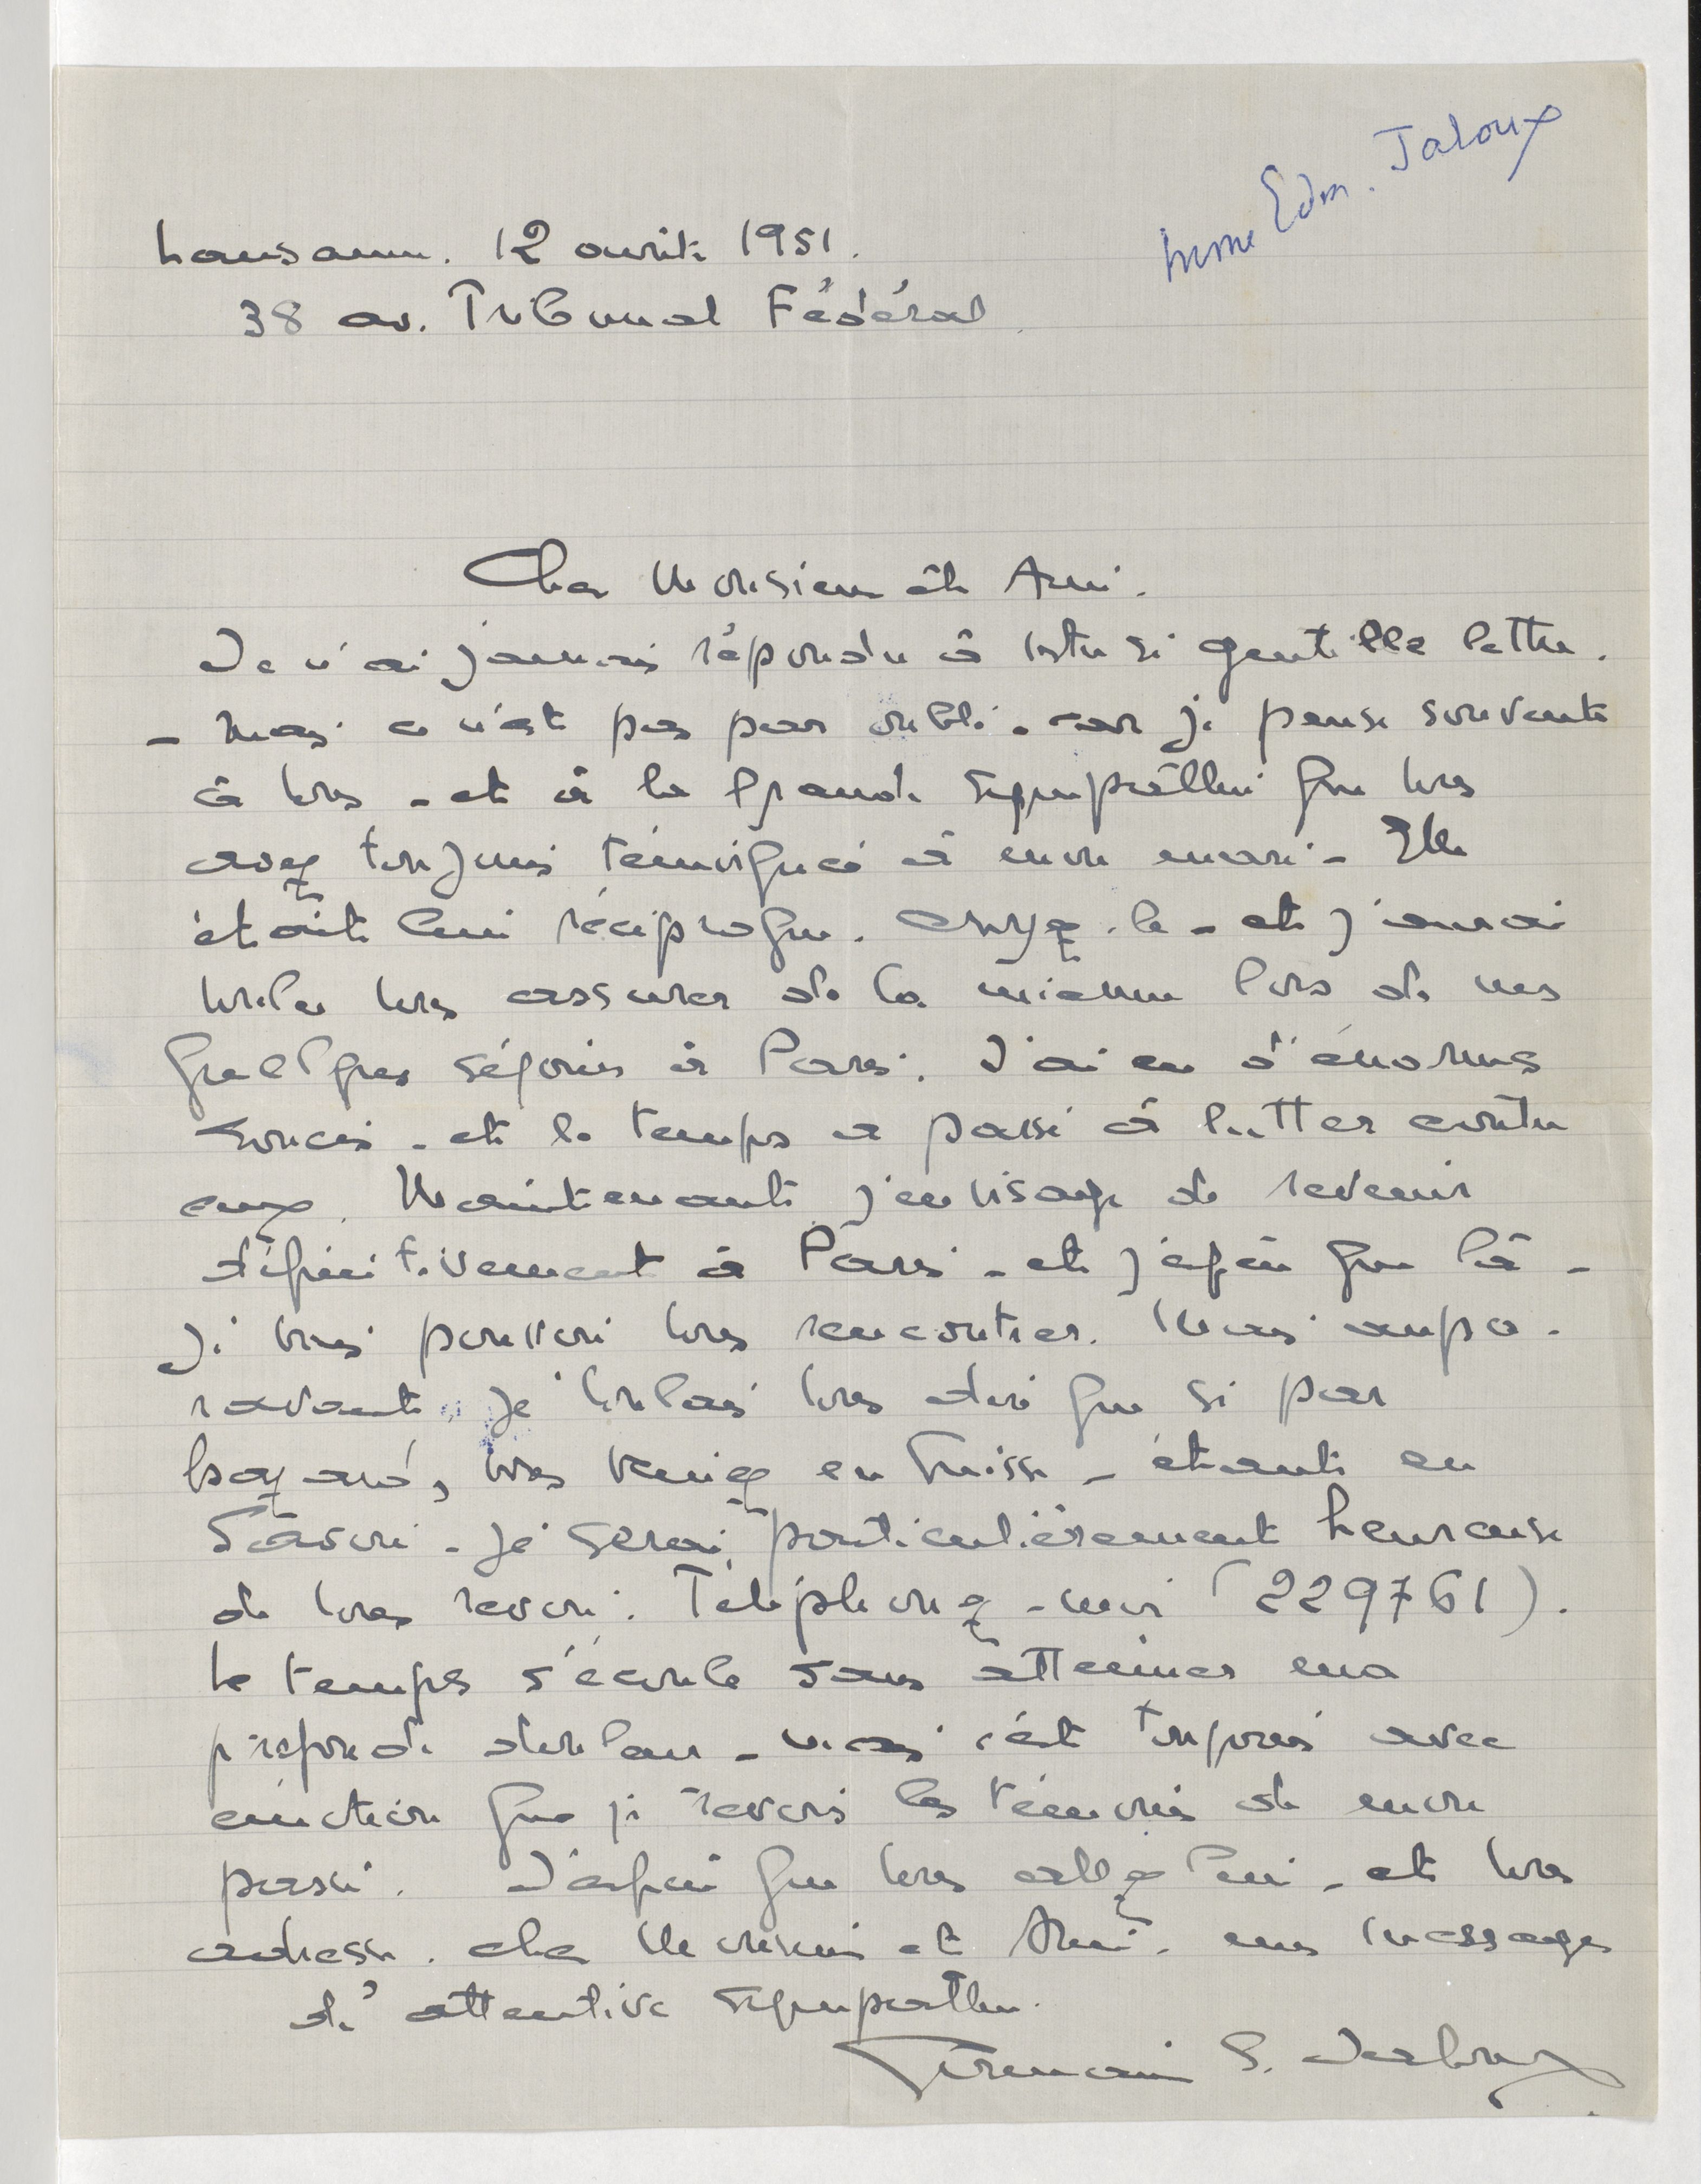 Mme Edm. Jaloux
Lausanne. 12 avril 1951.
38 av. Tribunal Fédéral
Cher Monsieur et Ami.
Je n'ai jamais répondu à votre si gentille lettre.
- Mais ce n'est pas par oubli - car je pense souvent
à vous - et à la grande sympathie que vous
avez toujours témoignée à mon mari - Elle
était bien réciproque. Croyez-le - et j'aurai
voulu vous assurer de la mienne lors de mes
quelques séjours à Paris. J'ai eu d'énormes
soucis - et le temps a passé à lutter contre
eux. Maintenant j'envisage de revenir
définitivement à Paris - et j'espère que là -
je vais pouvoir vous rencontrer. Mais aupa-
ravant, je voulais vous dire que si par
hasard, vous veniez en Suisse - étant en
Savoie - je serai particulièrement heureuse
de vous revoir. Téléphonez-moi (229761).
Le temps s'écoule sans atténuer ma
profonde douleur - mais c'est toujours avec
émotion que je revois les témoins de mon
passé. J'espère que vous allez bien - et vous
adresse, cher Monsieur et Ami, mes messages
d'attentive sympathie.
Germaine E. Jaloux